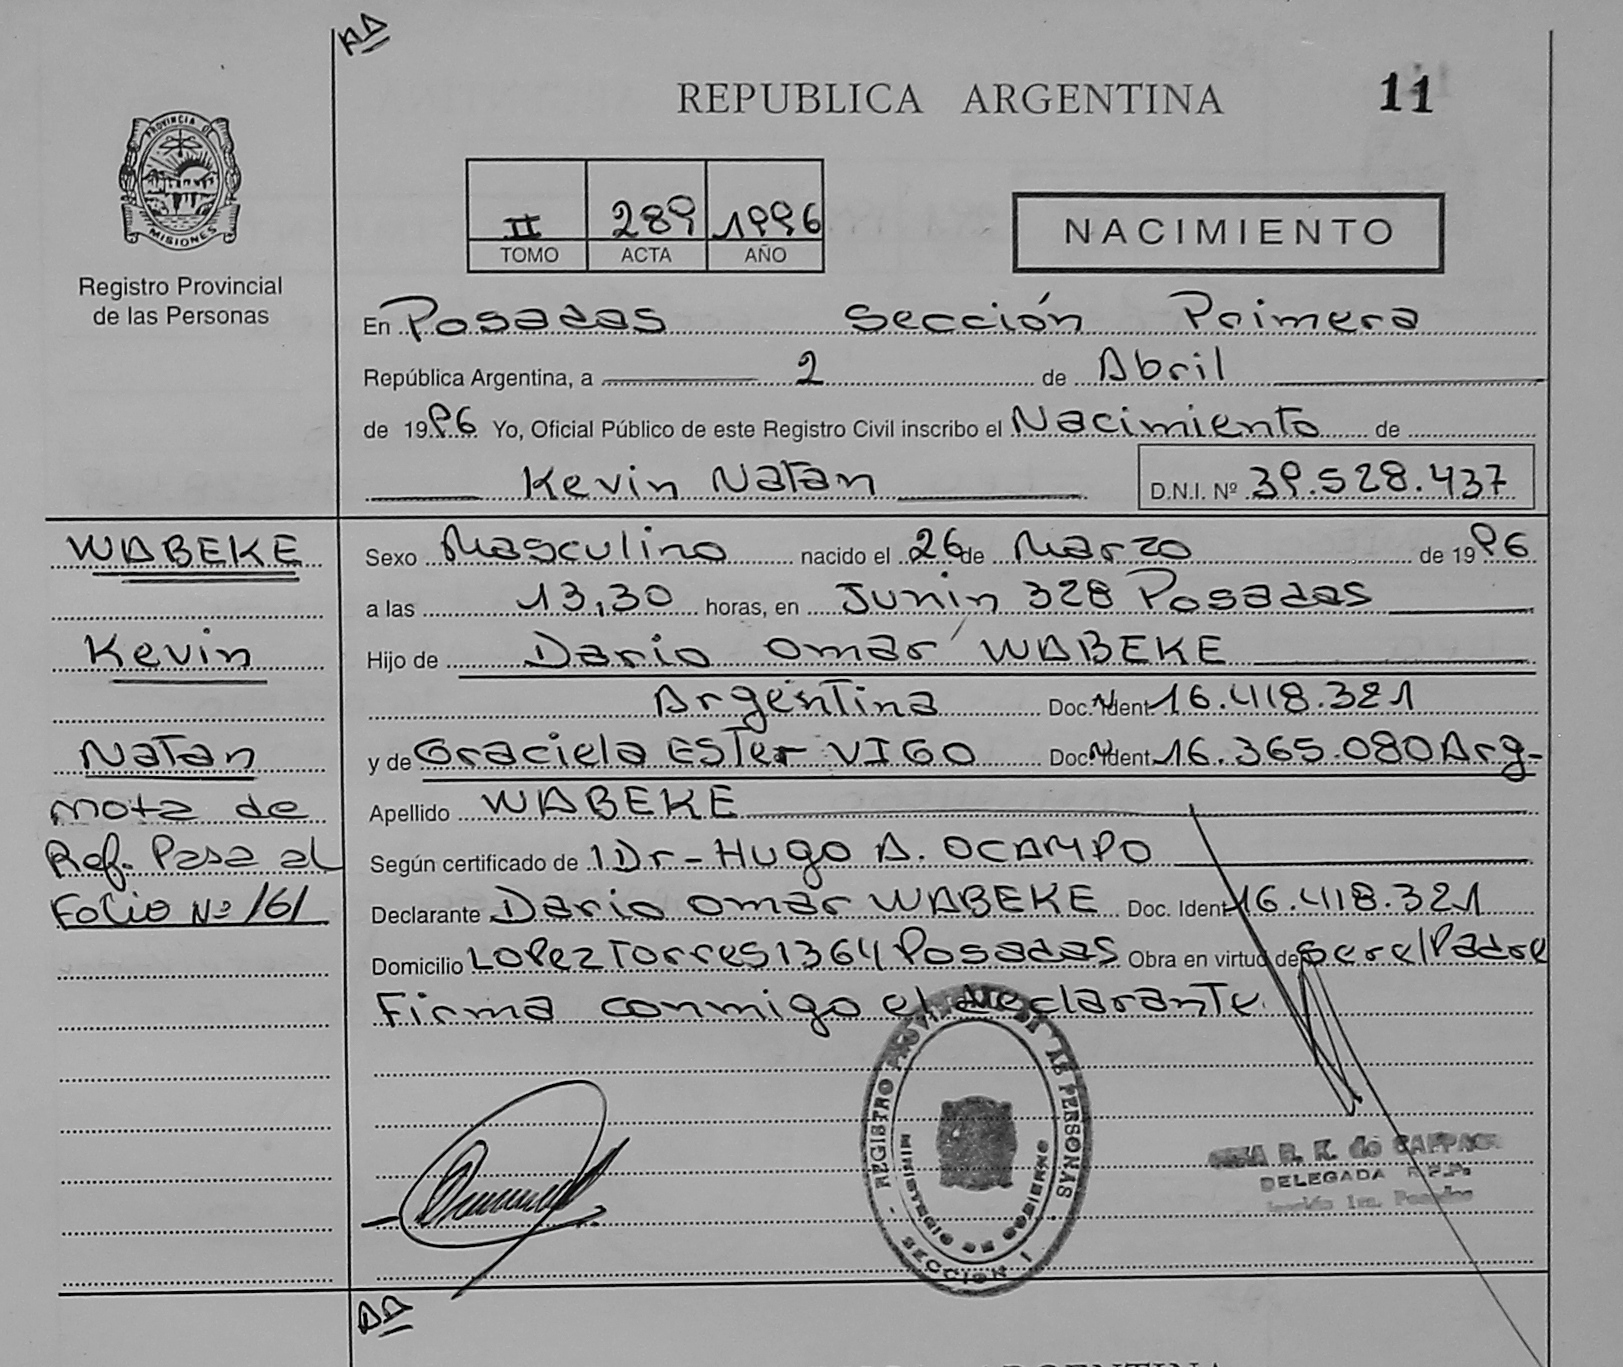 REPUBLICA ARGENTINA
11
PROVINCIA DE
MISIONES
Registro Provincial
de las Personas
II 289 1996
TOMO ACTA AÑO
NACIMIENTO
En Posadas Sección Primera
República Argentina, a 2 de Abril
de 1996 Yo, Oficial Público de este Registro Civil inscribo el Nacimiento de
Kevin Natan D.N.I. Nº 39.528.437
WABEKE
Kevin
Natan
nota de
Ref. Pasa al
Folio Nº 161
Sexo Masculino nacido el 26 de Marzo de 1996
a las 13,30 horas, en Junin 328 Posadas
Hijo de Dario Omar WABEKE
Argentina Doc. Ident 16.418.321
y de Graciela Ester VIGO Doc. Ident 16.365.080 Arg-
Apellido WABEKE
Según certificado de 1 Dr- Hugo A. OCAMPO
Declarante Dario Omar WABEKE Doc. Ident 16.418.321
Domicilio Lopez Torres 1364 Posadas Obra en virtud de ser el Padre
Firma conmigo el declarante.
REGISTRO PROVINCIAL DE LAS PERSONAS
MINISTERIO DE GOBIERNO
SECCION 1
R. K. de
DELEGADA R.P.P.
Sección 1ra. Posadas